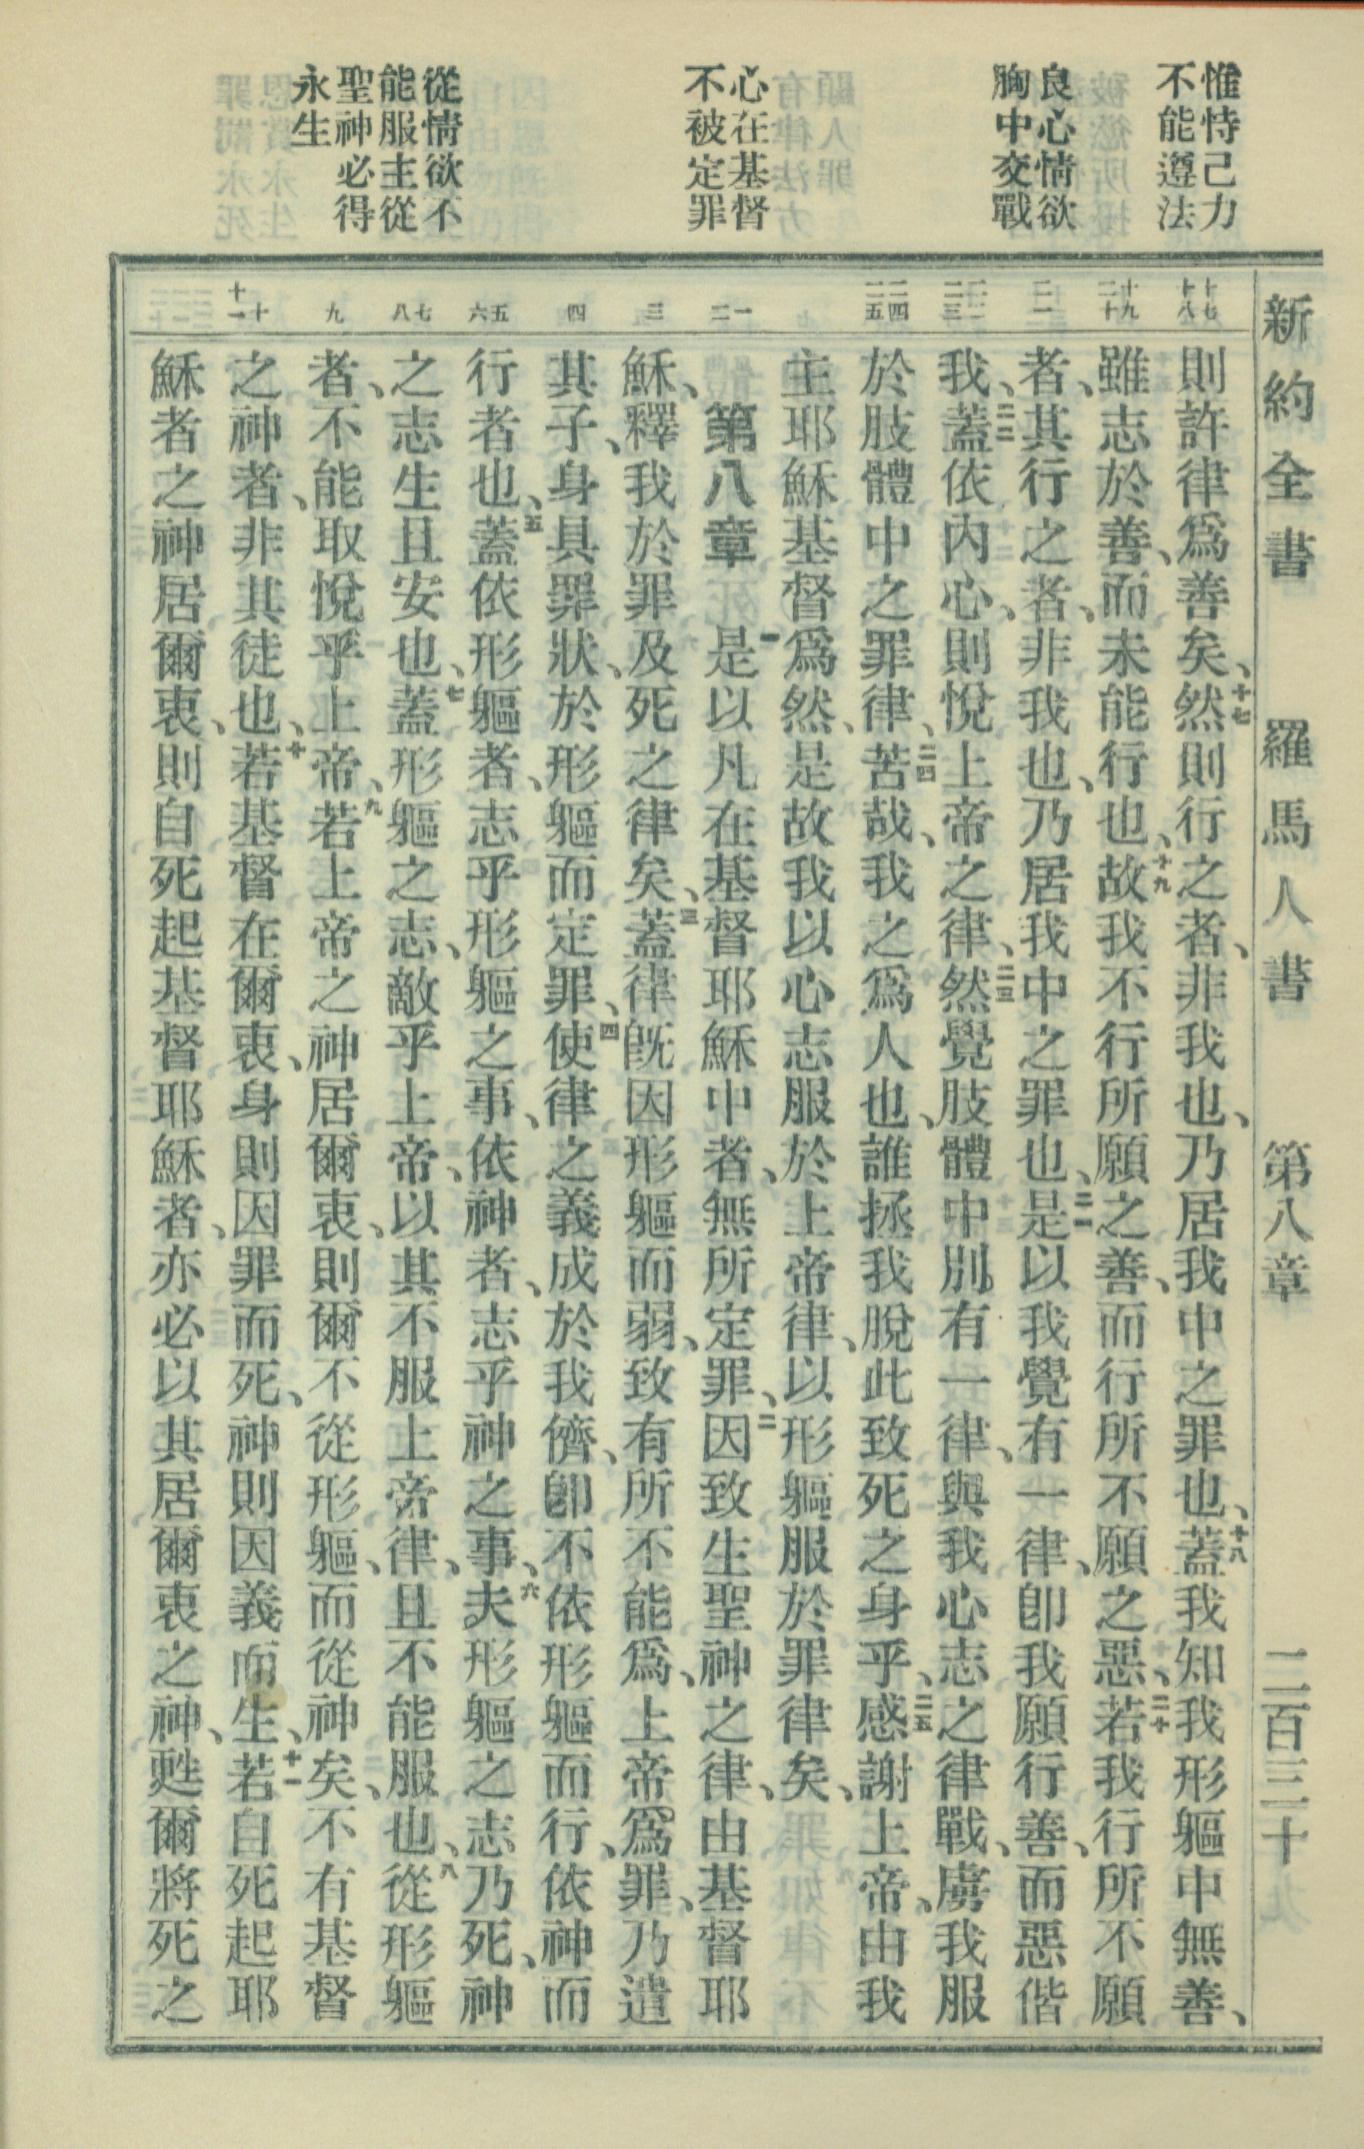 惟恃己力
不能遵法
良心情欲
胸中交戰
心在基督
不被定罪
從情欲不
能服主從
聖神必得
永生
新約全書 羅馬人書 第八章 二百三十
十七
十八
十九
二十
二一
二二
二三
二四
二五
一
二
三
四
五
六
七
八
九
十
十一
則許律爲善矣、十七然則行之者、非我也、乃居我中之罪也、十八蓋我知我形軀中無善、
雖志於善、而未能行也、十九故我不行所願之善、而行所不願之惡、二十若我行所不願
者、其行之者、非我也、乃居我中之罪也、二一是以我覺有一律、卽我願行善、而惡偕
我、二二蓋依內心、則悅上帝之律、二三然覺肢體中別有一律、與我心志之律戰、虜我服
於肢體中之罪律、二四苦哉、我之爲人也、誰拯我脫此致死之身乎、二五感謝上帝、由我
主耶穌基督爲然、是故我以心志服於上帝律、以形軀服於罪律矣、
第八章 一是以凡在基督耶穌中者、無所定罪、二因致生聖神之律、由基督耶
穌、釋我於罪及死之律矣、三蓋律旣因形軀而弱、致有所不能爲、上帝爲罪、乃遣
其子、身具罪狀、於形軀而定罪、四使律之義成於我儕、卽不依形軀而行、依神而
行者也、五蓋依形軀者、志乎形軀之事、依神者、志乎神之事、六夫形軀之志乃死、神
之志生且安也、七蓋形軀之志、敵乎上帝、以其不服上帝律、且不能服也、八從形軀
者、不能取悅乎上帝、九若上帝之神居爾衷、則爾不從形軀、而從神矣、不有基督
之神者、非其徒也、十若基督在爾衷、身則因罪而死、神則因義而生、十一若自死起耶
穌者之神居爾衷、則自死起基督耶穌者、亦必以其居爾衷之神、甦爾將死之